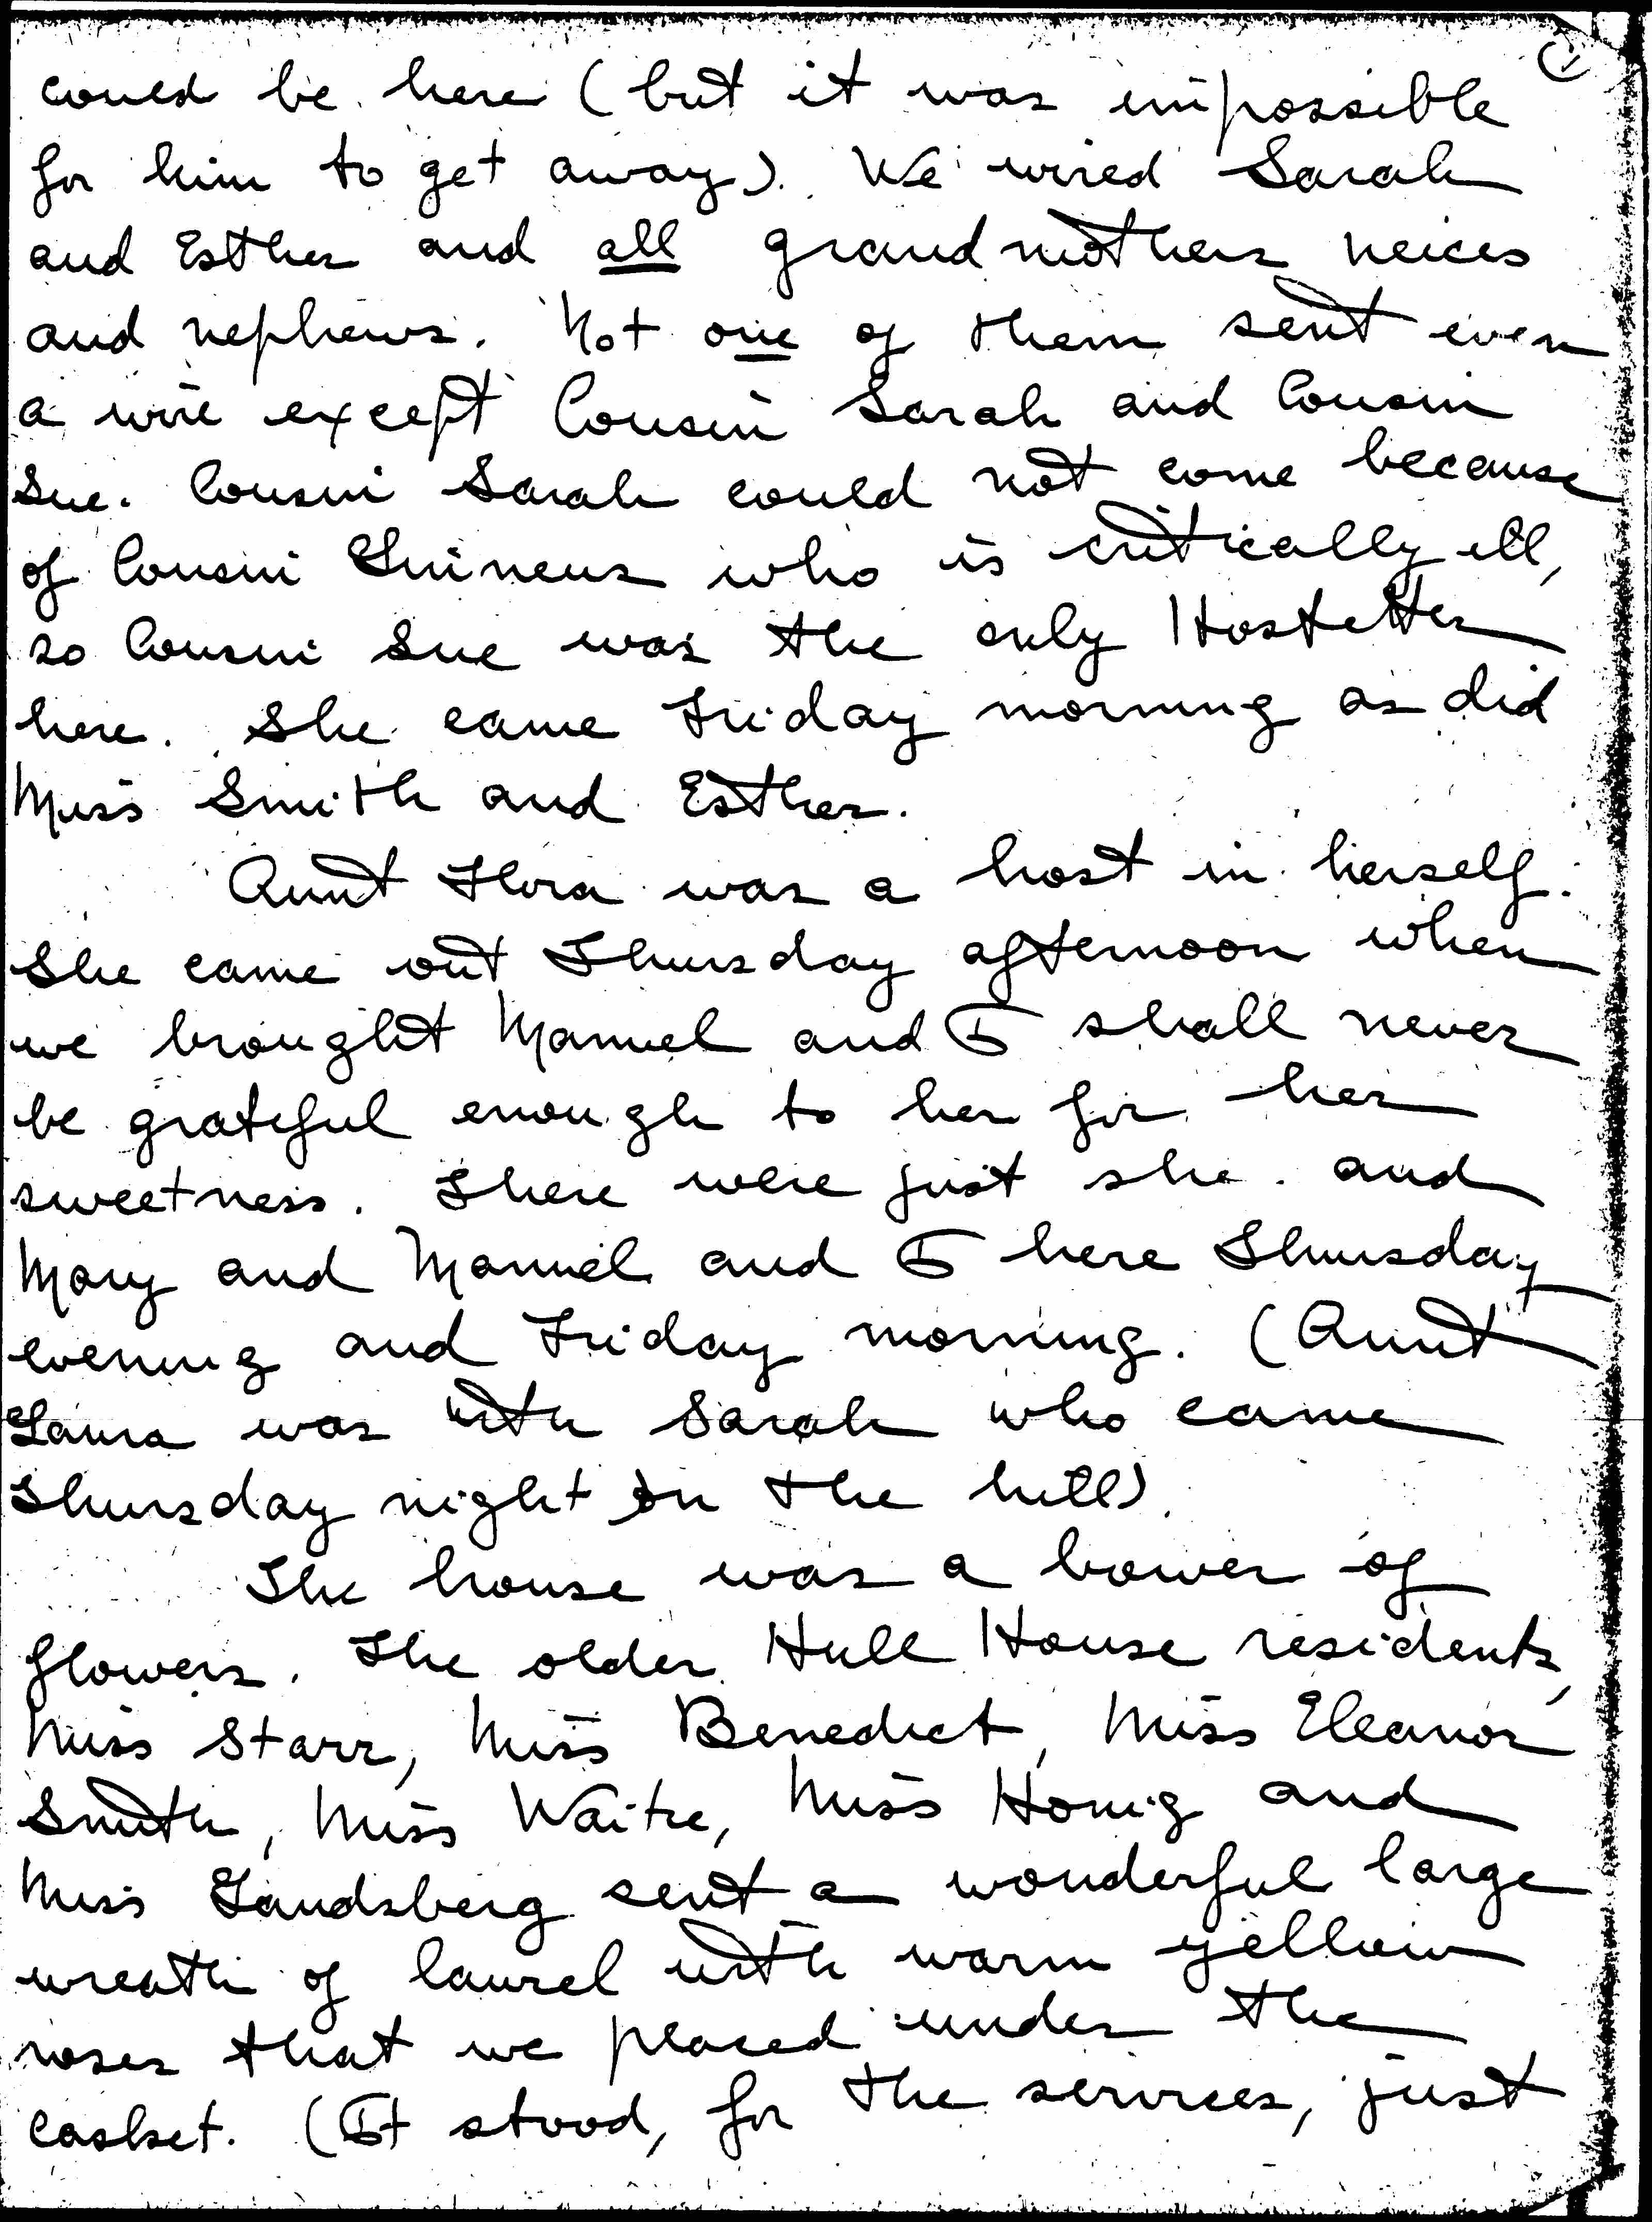 could be here (but it was impossible
for him to get away). We wired Sarah
and Esther and all grandmothers neices
and nephews. Not one of them sent even
a wire except Cousin Sarah and Cousin
Sue. Cousin Sarah could not come because
of Cousin Linneus who is critically ill,
so Cousin Sue was the only Hostetter
here. She came Friday morning as did
Miss Smith and Esther.
Aunt Flora was a host in herself.
She came out Thursday afternoon when
we brought Manuel and I shall never
be grateful enough to her for her
sweetness. There were just she and
Mary and Manuel and I here Thursday
evening and Friday morning. (Aunt
Laura was with Sarah who came
Thursday night on the hill).
The house was a bower of
flowers. The older Hull House residents,
Miss Starr, Miss Benedict, Miss Eleanor
Smith, Miss Waite, Miss Honig and
Miss Landsberg sent a wonderful large
wreath of laurel with warm yellow
roses that we placed under the
casket. (It stood, for the services, just